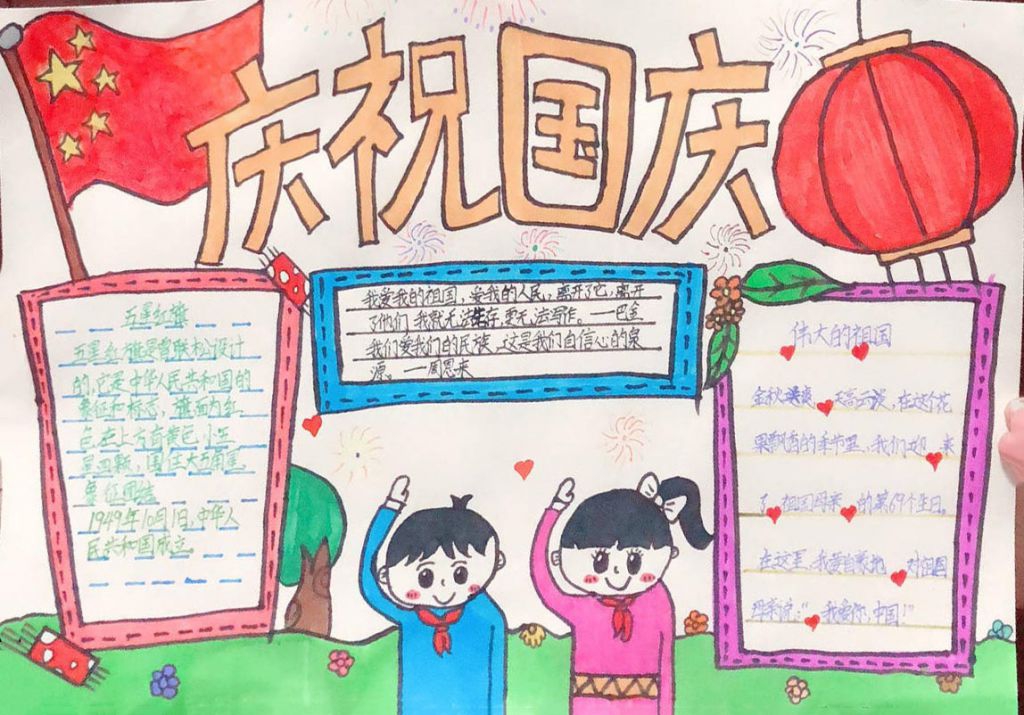 庆祝国庆
五星红旗
五星红旗是曾联松设计
的,它是中华人民共和国的
象征和标志,旗面为红
色,左上方有黄色小五
星四颗,围住大五角星
象征团结
1949年10月1日,中华人
民共和国成立。
我爱我的祖国,爱我的人民,离开了它,离开
了他们,我就无法生存,更无法写作。——巴金
我们爱我们的民族,这是我们自信心的泉
源。——周恩来
伟大的祖国
金秋送爽,天高云淡,在这个花
果飘香的季节里,我们迎来
了祖国母亲的第69个生日。
在这里,我要自豪地对祖国
母亲说:“我爱你,中国!”